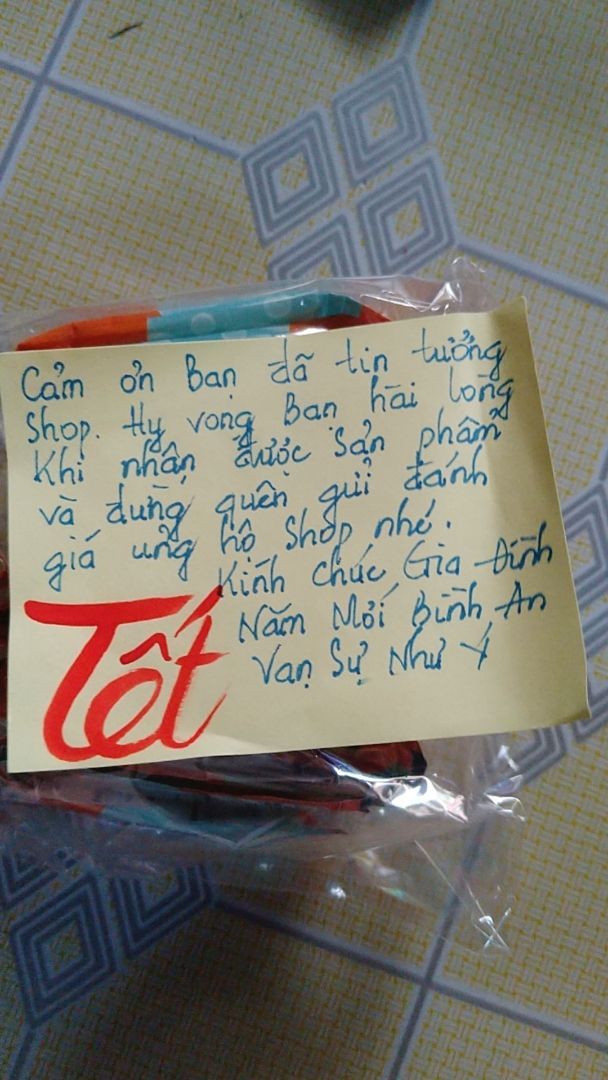 Cảm ơn Bạn đã tin tưởng
Shop. Hy vọng Bạn hài lòng
Khi nhận được Sản phẩm
và đừng quên gửi đánh
giá ủng hộ Shop nhé.
Kính chúc Gia Đình
Năm Mới Bình An
Vạn Sự Như Ý
Tết